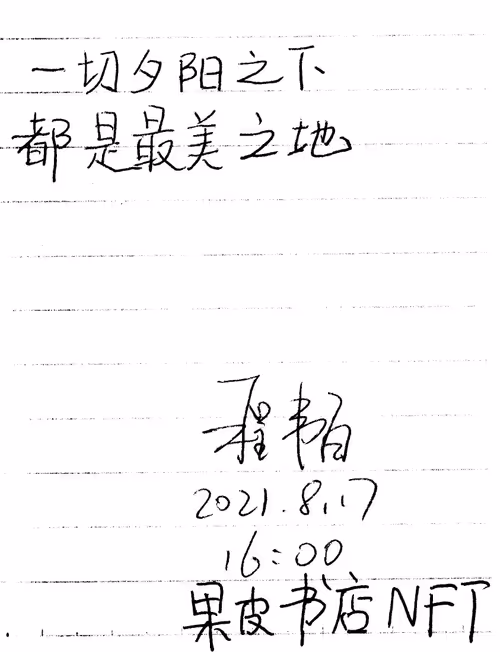 一切夕阳之下
都是最美之地
程书白
2021.8.17
16:00
果皮书店NFT